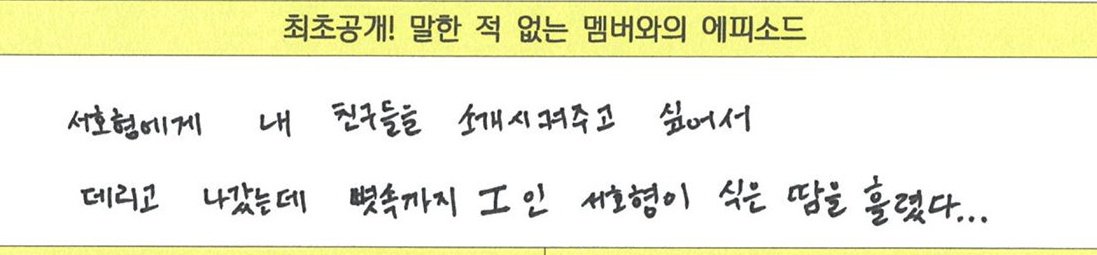 최초공개! 말한 적 없는 멤버와의 에피소드
서호형에게 내 친구들을 소개시켜주고 싶어서
데리고 나갔는데 뼛속까지 I인 서호형이 식은 땀을 흘렸다...